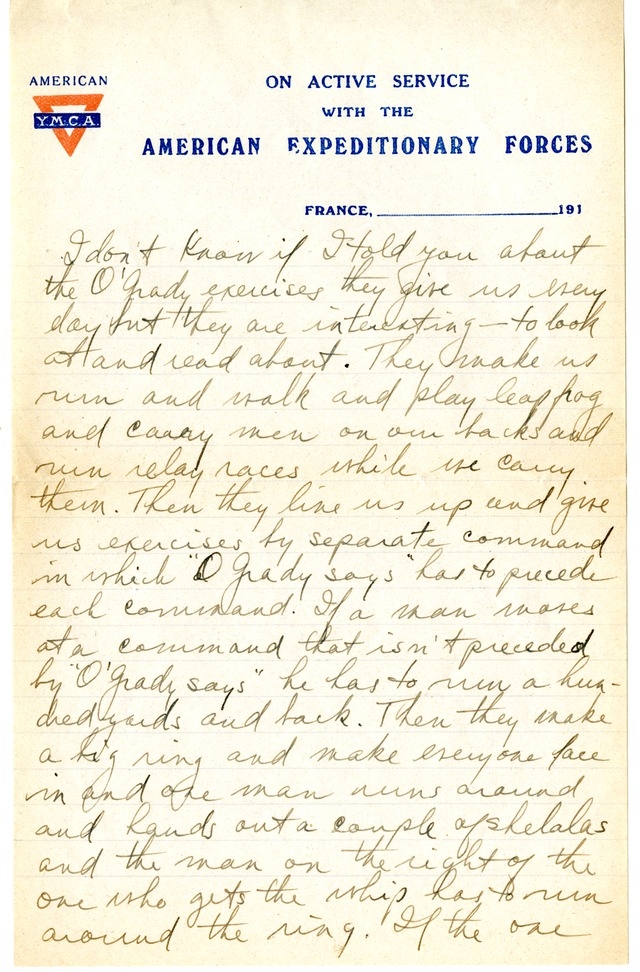 AMERICAN
Y.M.C.A.
ON ACTIVE SERVICE
WITH THE
AMERICAN EXPEDITIONARY FORCES
FRANCE, 191
I don't know if I told you about
the O'Grady exercises they give us every
day but they are interesting—to look
at and read about. They make us
run and walk and play leap frog
and carry men on our backs and
run relay races while we carry
them. Then they line us up and give
us exercises by separate command
in which "O Grady says" has to precede
each command. If a man moves
at a command that isn't preceded
by "O'Grady says" he has to run a hun-
dred yards and back. Then they make
a big ring and make everyone face
in and one man runs around
and hands out a couple of shelalas
and the man on the right of the
one who gets the whip has to run
around the ring. If the one